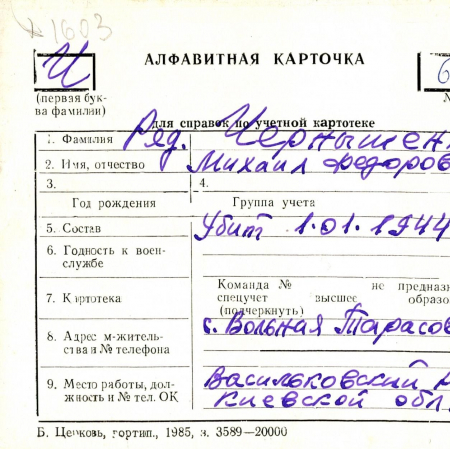 1603
АЛФАВИТНАЯ КАРТОЧКА
Ч
6
(первая бук-
ва фамилии)
№
для справок по учетной картотеке
1. Фамилия Ряд. Чернышен
2. Имя, отчество Михаил Федоров
3. 4.
Год рождения Группа учета
5. Состав Убит 1.01.1944
6. Годность к воен-
службе
Команда № не предназн
спецучет высшее образо
(подчеркнуть)
7. Картотека
8. Адрес м-житель-
ства и № телефона
с. Вольная Тарасов
9. Место работы, дол-
жность и № тел. ОК
Васильковский р
Киевской обл.
Б. Церковь, гортип., 1985, з. 3589—20000